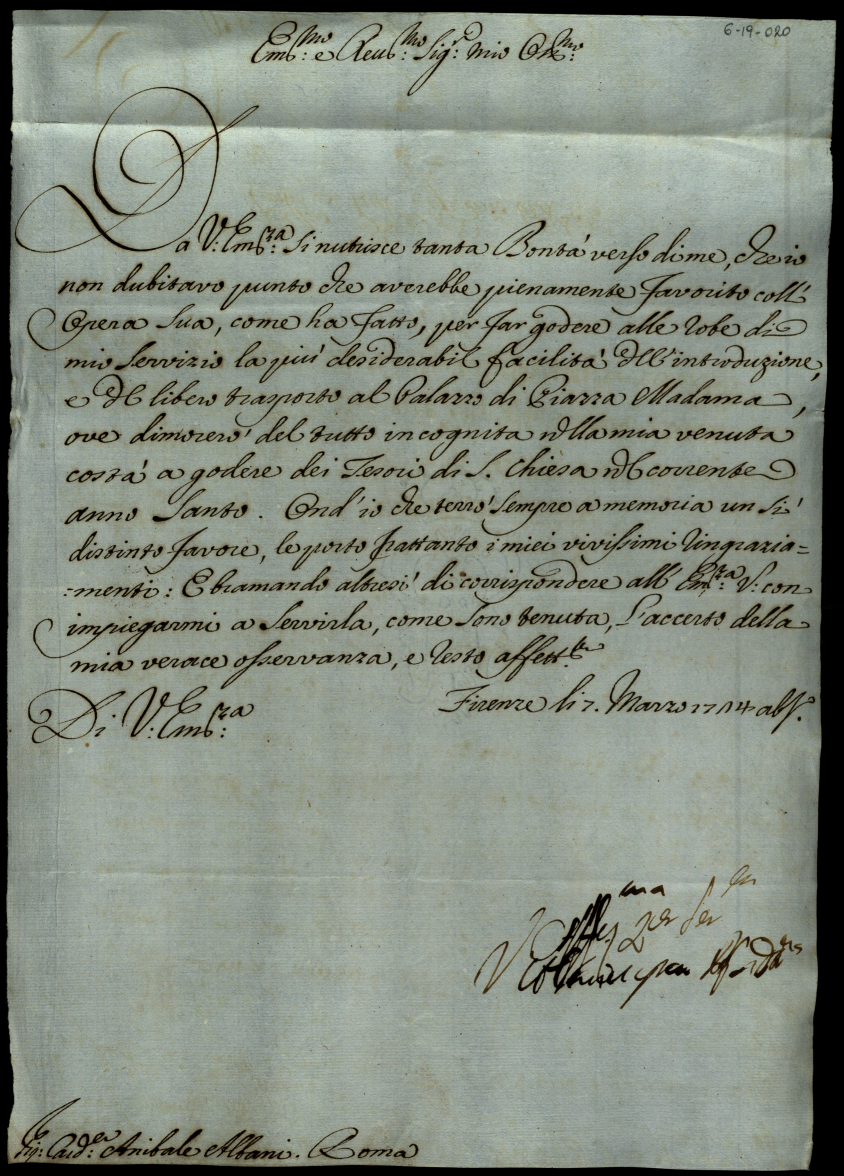 6-19-020
Em.mo e Reu.mo Sig.r mio Oss.mo
Da V: Em.za si nutrisce tanta Bontà verso di me, che io
non dubitavo punto che averebbe pienamente favorito coll'
Opera Sua, come ha fatto, per far godere alle robe di
mio Servizio la più desiderabil facilità dell'introduzione,
e del libero trasporto al Palazzo di Piazza Madama,
ove dimorerò del tutto incognita nella mia venuta
costà a godere dei Tesori di S. Chiesa nel corrente
anno Santo. Ond'io che terrò sempre a memoria un sì
distinto favore, le porto frattanto i miei vivissimi ringrazia=
=menti: E bramando altresì di corrispondere all' Em.za V: con
impiegarmi a Servirla, come sono tenuta, L'accerto della
mia verace osservanza, e resto affett.te
Di V: Em.za
Firenze li 7. Marzo 17 ab I.
Aff.ma per ser
V
Sig: Card.le Anibale Albani. Roma